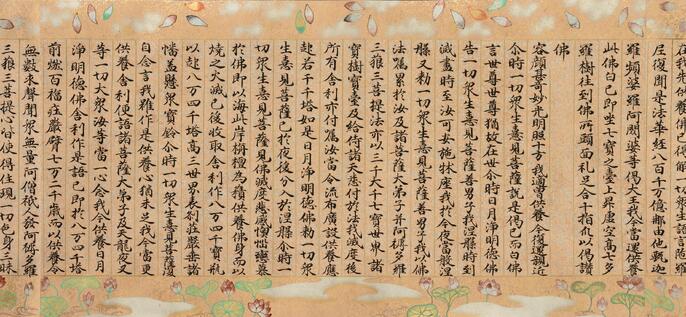 在我先供養佛已得解一切衆生語言陀羅
尼復聞是法華經八百千万億那由他甄迦
羅頻婆羅阿閦婆等偈大王我今當還供養
此佛白已即坐七寶之臺上昇虛空高七多
羅樹往到佛所頭面礼足合十指爪以偈讃
佛
容顔甚奇妙光明照十方我適曾供養今復還親近
尒時一切衆生憙見菩薩說是偈已而白佛
言世尊世尊猶故在世尒時日月淨明德佛
告一切衆生憙見菩薩善男子我涅槃時到
滅盡時至汝可安施牀座我於今夜當般涅
槃又勅一切衆生憙見菩薩善男子我以佛
法属累於汝及諸菩薩大弟子并阿耨多羅
三藐三菩提法亦以三千大千七寶世界諸
寶樹寶臺及給侍諸天悉付於汝我滅度後
所有舍利亦付属汝當令流布廣設供養應
起若干千塔如是日月淨明德佛勅一切衆
生憙見菩薩已於夜後分入於涅槃尒時一
切衆生憙見菩薩見佛滅度悲感懊惱戀慕
於佛即以海此岸栴檀爲𧂐供養佛身而以
燒之火滅已後收取舍利作八万四千寶瓶
以起八万四千塔高三世界表刹莊嚴垂諸
幡蓋懸衆寶鈴尒時一切衆生憙見菩薩復
自念言我雖作是供養心猶未足我今當更
供養舍利便語諸菩薩大弟子及天龍夜叉
等一切大衆汝等當一心念我今供養日月
淨明德佛舍利作是語已即於八万四千塔
前燃百福莊嚴臂七万二千歲而以供養令
無數求聲聞衆無量阿僧祇人發阿耨多羅
三藐三菩提心皆使得住現一切色身三昧